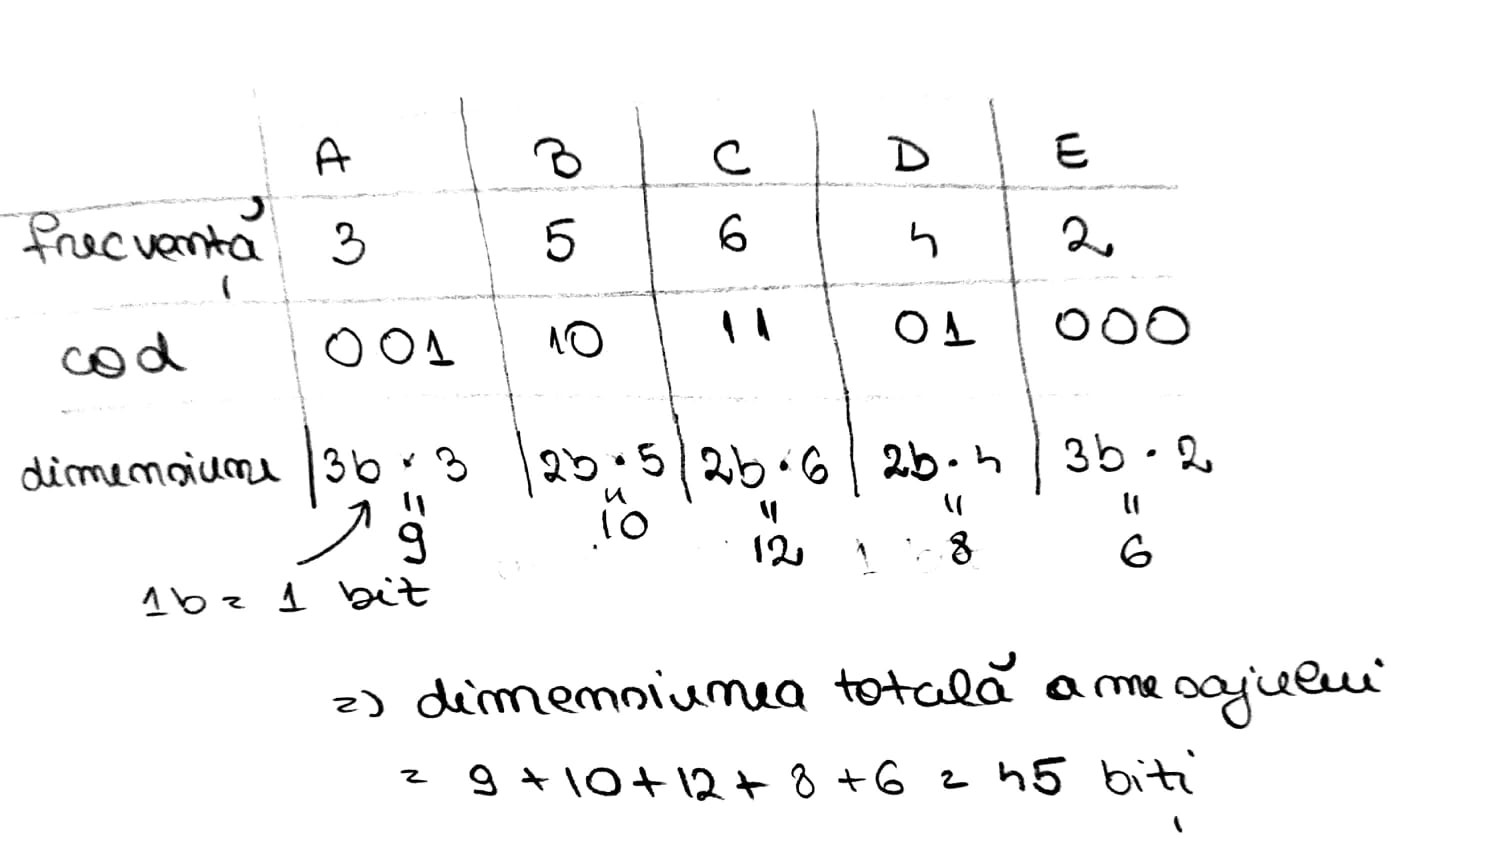 A B C D E
frecvență 3 5 6 4 2
cod 001 10 11 01 000
dimensiune 3b · 3 2b · 5 2b · 6 2b · 4 3b · 2
= = = = =
9 10 12 8 6
1b = 1 bit
=> dimensiunea totală a mesajului
= 9 + 10 + 12 + 8 + 6 = 45 biți